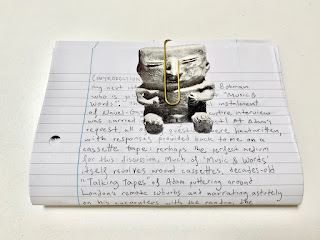 (INTRODUCTION
my next in Bohman
who is "Music &
Words". instalment
of Navel-Ga entire interview
was carried At Adam's
request, all questions were handwritten,
with responses provided back to me on a
cassette tape: perhaps the perfect medium
for this discussion. Much of 'Music & Words'
itself revolves around cassettes, decades-old
"Talking Tapes" of Adam puttering around
London's remote suburbs and narrating astutely
on his encounters with the random. The